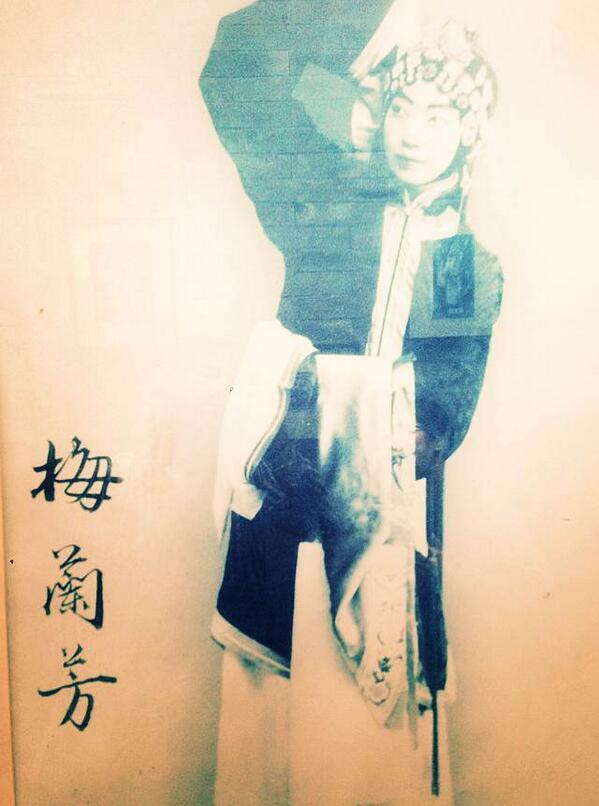 梅蘭芳